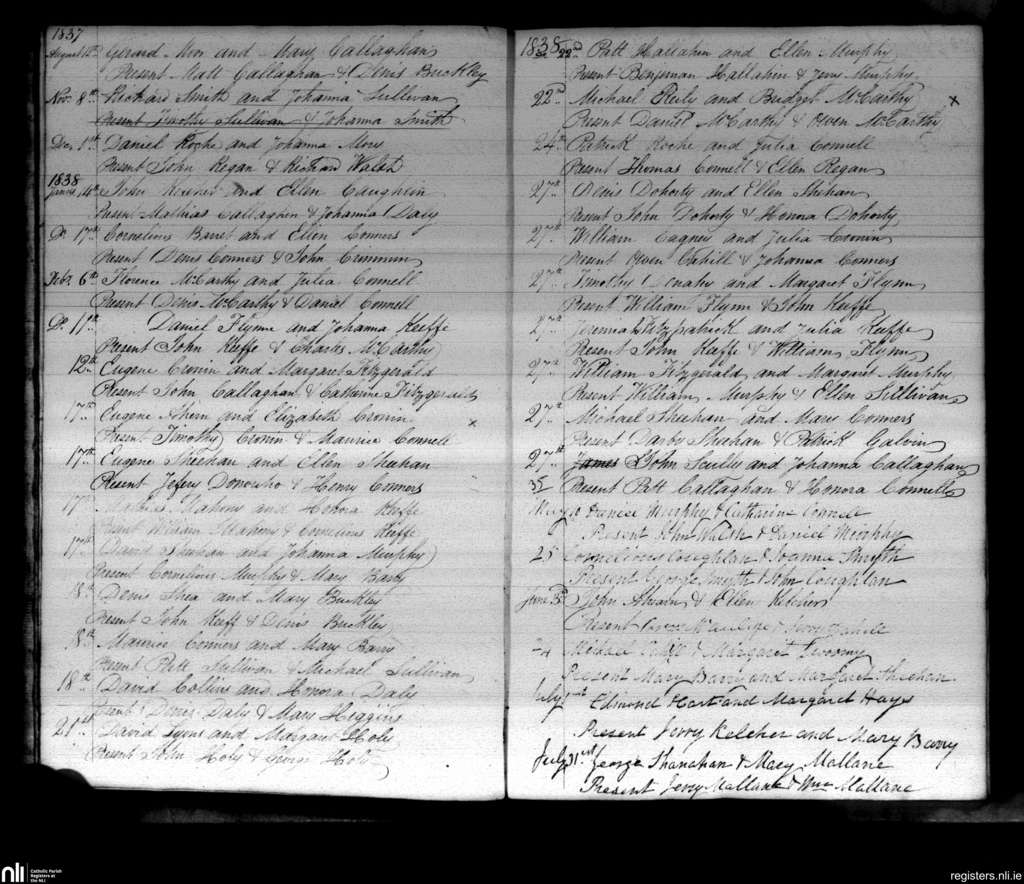 1837
August 1st Girard Mon and Mary Callaghan
Present Matt Callaghan & Denis Buckley
Nov. 8th Richard Smith and Johanna Sullivan
Present Timothy Sullivan & Johanna Smith
Dec. 1st Daniel Roche and Johanna
Present John Regan & Richard Walsh
1838
14th John and Ellen Coughlin
Present Mathias Callaghen & Johanna Daly
Do. 17th Cornelius Barret and Ellen Conners
Present Denis Conners & John
Feb. 6th Florence McCarthy and Julia Connell
Present Denis McCarthy & Daniel Connell
Do. 11th Daniel Flynne and Johanna Keiffe
Present John Keiffe & Charles McCarthy
12th Eugene Cronin and Margaret Fitzgerald
Present John Callaghan & Catherine Fitzgerald
17th Eugene Ahern and Elizabeth Cronin x
Present Timothy Cronin & Maurice Connell
17th Eugene Sheehan and Ellen Sheehan
Present Jefery Donoueho & Henry Conners
17th Mahony and Honora Keiffe
Present William Mahony & Cornelius Keiffe
17th David Sheehan and Johanna Murphy
Present Cornelius Murphy & Mary Barry
18th Denis Shea and Mary Buckley
Present John Keiff & Denis Buckley
18th Maurice Conners and Mary Barry
Present Patt Sullivan & Michael Sullivan
18th David Collins and Honora Daly
Present Denis Daly & Mary Higgins
21st David Lyons and Margaret Holy
Present John Holy & George Holy
1838 22nd Patt Hallahin and Ellen Murphy
Present Benjeman Hallahin & Murphy
22nd Michael Reily and Bridget McCarthy x
Present Daniel McCarthy & Owen McCarthy
24th Patrick Roche and Julia Connell
Present Thomas Connell & Ellen Regan
27th Denis Doherty and Ellen Shihan
Present John Doherty & Honora Doherty
27th William Cagney and Julia Cronin
Present Owen Cahill & Johanna Conners
27th Timothy Donahu and Margaret Flynn
Present William Flynn & John Keiffe
27th Jeremiah Fitzpatrick and Julia Keiffe
Present John Keiffe & William Flynn
27th William Fitzgerald and Margaret Murphy
Present William Murphy & Ellen Sullivan
27th Michael Sheehan and Mary Conners
Present Darby Sheehan & Patrick Galvin
27th James John Scully and Johanna Callaghan
Present Patt Callaghan & Honora Connell
May 10 Murphy & Catharine Connell
Present John Walsh & Daniel Murphy
25 Cornelious Coughlan & Joanna Smyth
Present George Smyth & John Coughlan
June 3d John Ahearn & Ellen Kelcher
Present
24 & Margaret Twoomy
Present Mary Barry and Margaret Sheehan
July 1st Edmond Hart and Margaret Hays
Present Jerry Kelcher and Mary Barry
July 31st George Shanahan & Mary Mallane
Present Jerry Mallane & Wm Mallane
nli Catholic Parish Registers at the NLI
registers.nli.ie